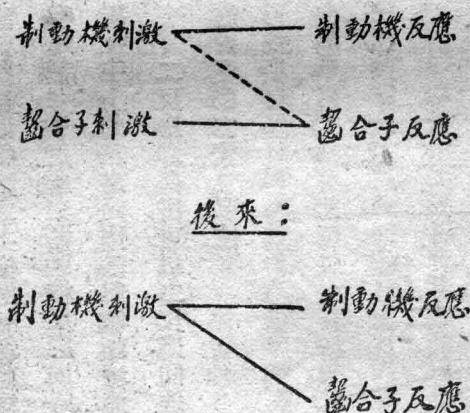 制動機刺激 制動機反應
齧合子刺激 齧合子反應
後來：
制動機刺激 制動機反應
齧合子反應